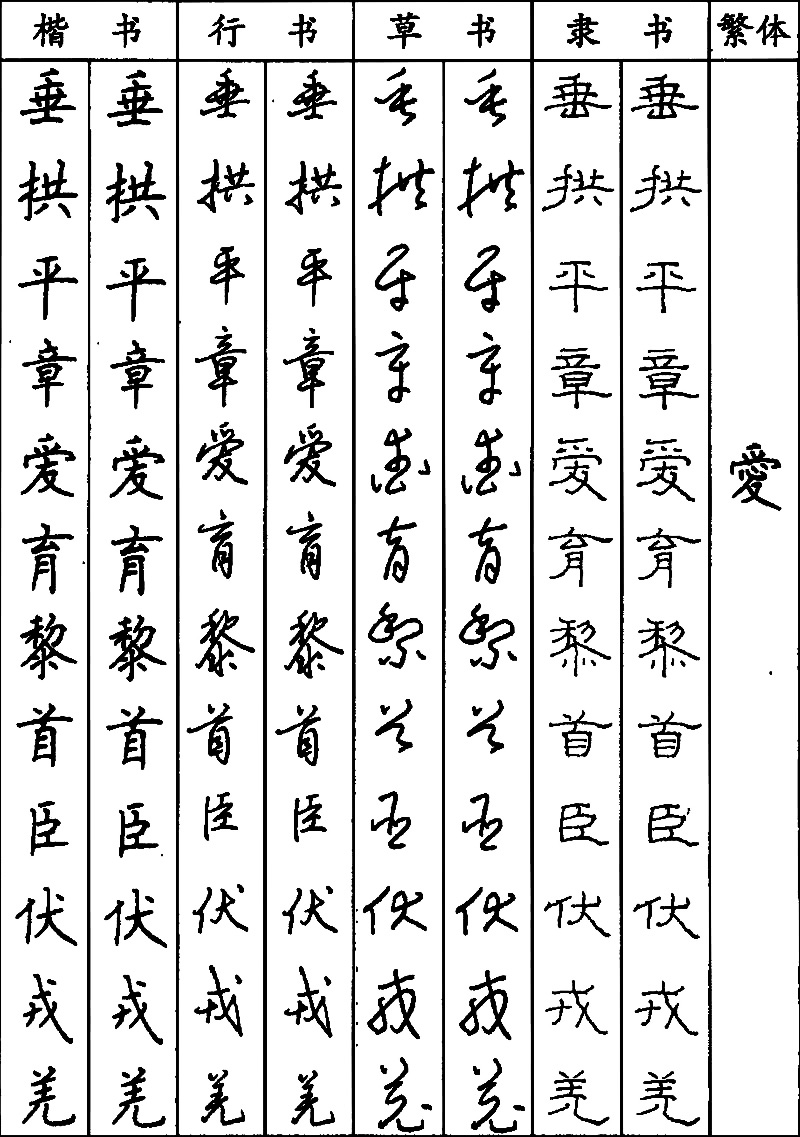 楷书 行书 草书 隶书 繁体
垂 垂 垂 垂 垂 垂 垂 垂
拱 拱 拱 拱 拱 拱 拱 拱
平 平 平 平 平 平 平 平
章 章 章 章 章 章 章 章
爱 爱 爱 爱 爱 爱 爱 爱 愛
育 育 育 育 育 育 育 育
黎 黎 黎 黎 黎 黎 黎 黎
首 首 首 首 首 首 首 首
臣 臣 臣 臣 臣 臣 臣 臣
伏 伏 伏 伏 伏 伏 伏 伏
戎 戎 戎 戎 戎 戎 戎 戎
羌 羌 羌 羌 羌 羌 羌 羌